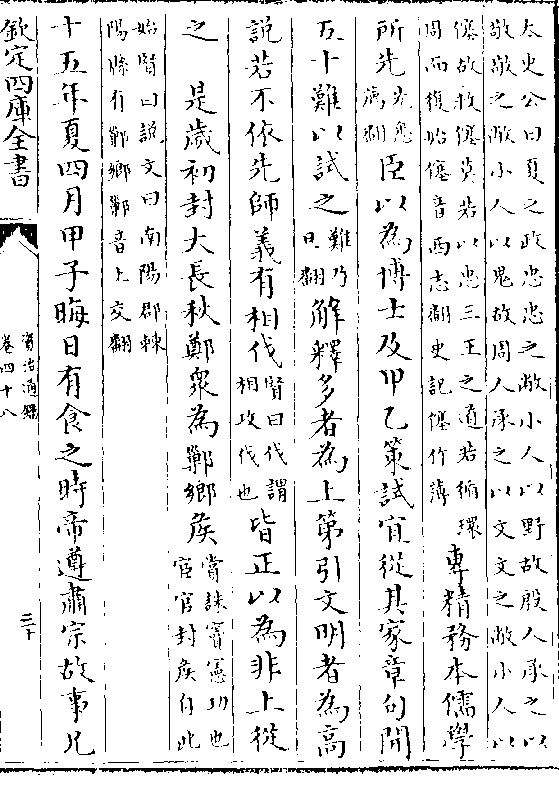 太史公曰夏之政忠忠之敝小人以野故殷人承之以
敬敬之敝小人以鬼故周人承之以文文之敝小人以
僿故救僿莫若以忠三王之道若循環
周而復始僿音西志翻史記僿作薄
專精務本儒學
所先先悉薦翻臣以為博士及甲乙策試宜從其家章句開
五十難以試之難乃旦翻解釋多者為上第引文明者為高
說若不依先師義有相伐賢曰伐謂相攻伐也皆正以為非上從
之 是歲初封大長秋鄭衆為鄛鄉侯賞誅竇憲功也宦官封侯自此
始賢曰說文曰南陽郡棘
陽縣有鄛鄉鄛音士交翻
十五年夏四月甲子晦日有食之時帝遵肅宗故事兄
欽定四庫全書
資治通鑑
卷四十八
三十